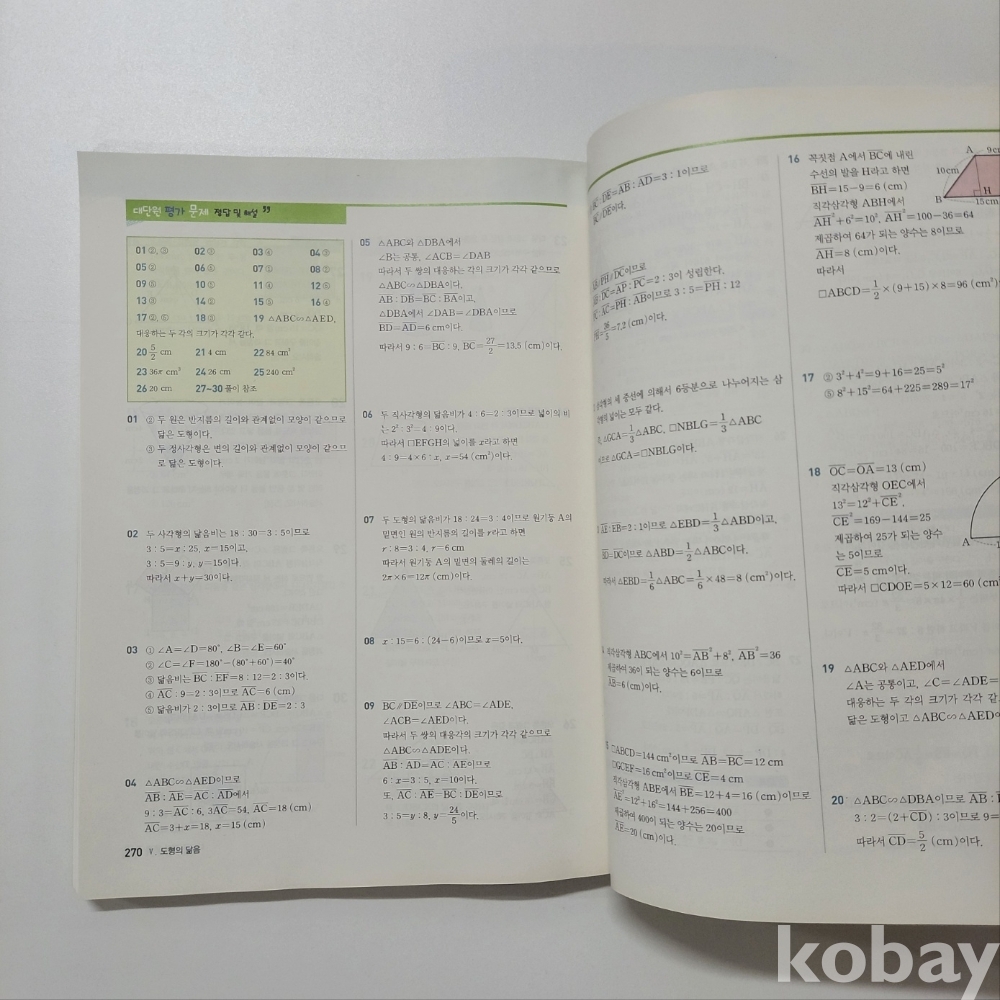 대단원 평가 문제 정답 및 해설
05 △ABC와 △DBA에서
∠B는 공통, ∠ACB=∠DAB
따라서 두 쌍의 대응하는 각의 크기가 각각 같으므로
△ABC∽△DBA이다.
AB : DB=BC : BA이고,
△DBA에서 ∠DAB=∠DBA이므로
BD=AD=6 cm이다.
따라서 9 : 6=BC : 9, BC=27/2=13.5 (cm)이다.
19 △ABC∽△AED,
대응하는 두 각의 크기가 각각 같다.
20 5/2 cm 21 4 cm 22 84 cm²
23 36π cm³ 24 26 cm 25 240 cm²
26 20 cm 27~30 풀이 참조
01 ② 두 원은 반지름의 길이와 관계없이 모양이 같으므로
닮은 도형이다.
③ 두 정사각형은 변의 길이와 관계없이 모양이 같으므
로 닮은 도형이다.
02 두 사각형의 닮음비는 18 : 30=3 : 5이므로
3 : 5=x : 25, x=15이고,
3 : 5=9 : y, y=15이다.
따라서 x+y=30이다.
03 ① ∠A=∠D=80°, ∠B=∠E=60°
② ∠C=∠F=180°-(80°+60°)=40°
③ 닮음비는 BC : EF=8 : 12=2 : 3이다.
④ AC : 9=2 : 3이므로 AC=6 (cm)
⑤ 닮음비가 2 : 3이므로 AB : DE=2 : 3
04 △ABC∽△AED이므로
AB : AE=AC : AD에서
9 : 3=AC : 6, 3AC=54, AC=18 (cm)
AC=3+x=18, x=15 (cm)
06 두 직사각형의 닮음비가 4 : 6=2 : 3이므로 넓이의 비
는 2² : 3²=4 : 9이다.
따라서 □EFGH의 넓이를 x라고 하면
4 : 9=4×6 : x, x=54 (cm²)이다.
07 두 도형의 닮음비가 18 : 24=3 : 4이므로 원기둥 A의
밑면인 원의 반지름의 길이를 r라고 하면
r : 8=3 : 4, r=6 cm
따라서 원기둥 A의 밑면의 둘레의 길이는
2π×6=12π (cm)이다.
08 x : 15=6 : (24-6)이므로 x=5이다.
09 BC∥DE이므로 ∠ABC=∠ADE,
∠ACB=∠AED이다.
따라서 두 쌍의 대응각의 크기가 각각 같으므로
△ABC∽△ADE이다.
AB : AD=AC : AE이므로
6 : x=3 : 5, x=10이다.
또, AC : AE=BC : DE이므로
3 : 5=y : 8, y=24/5이다.
270 Ⅴ. 도형의 닮음
DE=AB : AD=3 : 1이므로
DE이다.
PH∥DC이므로
DC=AP : PC=2 : 3이 성립한다.
AC=PH : AB이므로 3 : 5=PH : 12
=36/5=7.2 (cm)이다.
세 중선에 의해서 6등분으로 나누어지는 삼
넓이는 모두 같다.
△GCA=1/3△ABC, □NBLG=1/3△ABC
이므로 △GCA=□NBLG이다.
AE : EB=2 : 1이므로 △EBD=1/3△ABD이고,
BD=DC이므로 △ABD=1/2△ABC이다.
따라서 △EBD=1/6△ABC=1/6×48=8 (cm²)이다.
직각삼각형 ABC에서 10²=AB²+8², AB²=36
제곱하여 36이 되는 양수는 6이므로
AB=6 (cm)이다.
□ABCD=144 cm²이므로 AB=BC=12 cm
□GCEF=16 cm²이므로 CE=4 cm
직각삼각형 ABE에서 BE=12+4=16 (cm)이므로
AE²=12²+16²=144+256=400
제곱하여 400이 되는 양수는 20이므로
AE=20 (cm)이다.
16 꼭짓점 A에서 BC에 내린
수선의 발을 H라고 하면
BH=15-9=6 (cm)
직각삼각형 ABH에서
AH²+6²=10², AH²=100-36=64
제곱하여 64가 되는 양수는 8이므로
AH=8 (cm)이다.
따라서
□ABCD=1/2×(9+15)×8=96 (cm²)
A 9cm
10cm
B H
15cm
17 ② 3²+4²=9+16=25=5²
⑤ 8²+15²=64+225=289=17²
18 OC=OA=13 (cm)
직각삼각형 OEC에서
13²=12²+CE²
CE²=169-144=25
제곱하여 25가 되는 양수
는 5이므로
CE=5 cm이다.
따라서 □CDOE=5×12=60 (cm
A
19 △ABC와 △AED에서
∠A는 공통이고, ∠C=∠ADE=
대응하는 두 각의 크기가 각각 같
닮은 도형이고 △ABC∽△AED
20 △ABC∽△DBA이므로 AB :
3 : 2=(2+CD) : 3이므로 9=
따라서 CD=5/2 (cm)이다.
kobay